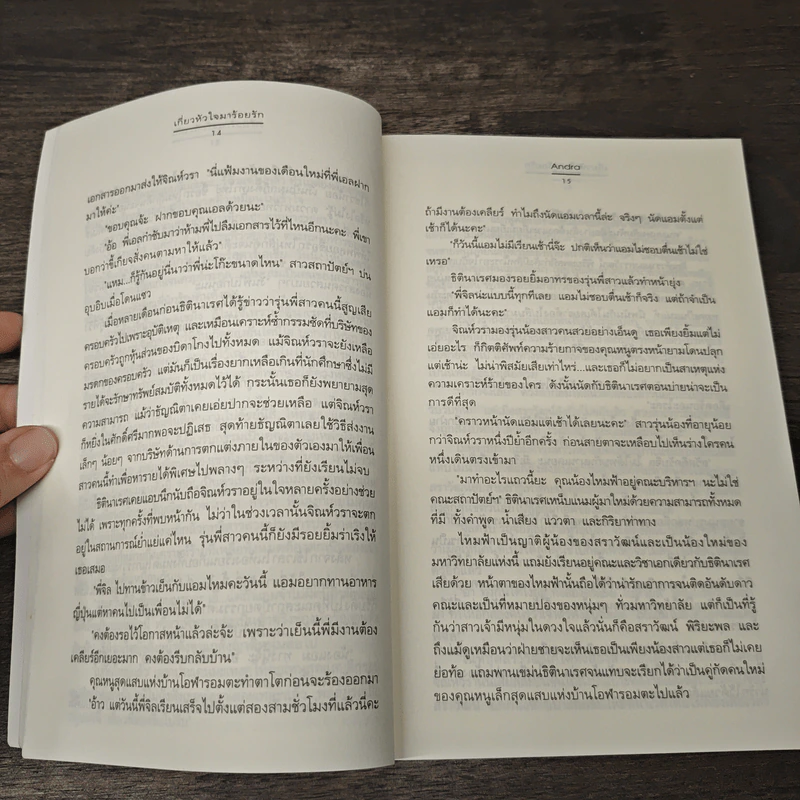 เกี่ยวหัวใจมาร้อยรัก
14
เอกสารออกมาส่งให้จิณห์วรา "นี่แฟ้มงานของเดือนใหม่ที่พี่เอลฝาก
มาให้ค่ะ"
"ขอบคุณจ้ะ ฝากขอบคุณเอลด้วยนะ"
"อ้อ พี่เอลกำชับมาว่าห้ามพี่ไปลืมเอกสารไว้ที่ไหนอีกนะคะ พี่เขา
บอกว่าขี้เกียจสั่งคนตามหาให้แล้ว"
"แหม...ก็รู้กันอยู่นี่นาว่าพี่น่ะโก๊ะขนาดไหน" สาวสถาปัตย์ฯ บ่น
อุบอิบเมื่อโดนแซว
เมื่อหลายเดือนก่อนธิตินาเรศได้รู้ข่าวว่ารุ่นพี่สาวคนนี้สูญเสีย
ครอบครัวไปเพราะอุบัติเหตุ และเหมือนเคราะห์ซ้ำกรรมซัดที่บริษัทของ
ครอบครัวถูกหุ้นส่วนของบิดาโกงไปทั้งหมด แม้จิณห์วราจะยังเหลือ
มรดกของครอบครัว แต่มันก็เป็นเรื่องยากเหลือเกินที่นักศึกษาซึ่งไม่มี
รายได้จะรักษาทรัพย์สมบัติทั้งหมดไว้ได้ กระนั้นเธอก็ยังพยายามสุด
ความสามารถ แม้ว่าธัญณิตาเคยเอ่ยปากจะช่วยเหลือ แต่จิณห์วรา
ก็หยิ่งในศักดิ์ศรีมากพอจะปฏิเสธ สุดท้ายธัญณิตาเลยใช้วิธีส่งงาน
เล็กๆ น้อยๆ จากบริษัทด้านการตกแต่งภายในของตัวเองมาให้เพื่อน
สาวคนนี้ทำเพื่อหารายได้พิเศษไปพลางๆ ระหว่างที่ยังเรียนไม่จบ
ธิตินาเรศเคยแอบนึกนับถือจิณห์วราอยู่ในใจหลายครั้งอย่างช่วย
ไม่ได้ เพราะทุกครั้งที่พบหน้ากัน ไม่ว่าในช่วงเวลานั้นจิณห์วราจะตก
อยู่ในสถานการณ์ย่ำแย่แค่ไหน รุ่นพี่สาวคนนี้ก็ยังมีรอยยิ้มร่าเริงให้
เธอเสมอ
"พี่จิล ไปทานข้าวเย็นกับแอมไหมคะวันนี้ แอมอยากทานอาหาร
ญี่ปุ่นแต่หาคนไปเป็นเพื่อนไม่ได้"
"คงต้องรอไว้โอกาสหน้าแล้วล่ะจ้ะ เพราะว่าเย็นนี้พี่มีงานต้อง
เคลียร์อีกเยอะมาก คงต้องรีบกลับบ้าน"
คุณหนูสุดแสบแห่งบ้านโอฬารอมตะทำตาโตก่อนจะร้องออกมา
"อ้าว แต่วันนี้พี่จิลเรียนเสร็จไปตั้งแต่สองสามชั่วโมงที่แล้วนี่คะ
Andra
15
ถ้ามีงานต้องเคลียร์ ทำไมถึงนัดแอมเวลานี้ล่ะ จริงๆ นัดแอมตั้งแต่
เช้าก็ได้นะคะ"
"ก็วันนี้แอมไม่มีเรียนเช้านี่จ๊ะ ปกติเห็นว่าแอมไม่ชอบตื่นเช้าไม่ใช่
เหรอ"
ธิตินาเรศมองรอยยิ้มอาทรของรุ่นพี่สาวแล้วทำหน้ายุ่ง
"พี่จิลน่ะแบบนี้ทุกทีเลย แอมไม่ชอบตื่นเช้าก็จริง แต่ถ้าจำเป็น
แอมก็ทำได้นะคะ"
จิณห์วรามองรุ่นน้องสาวคนสวยอย่างเอ็นดู เธอเพียงยิ้มแต่ไม่
เอ่ยอะไร ก็กิตติศัพท์ความร้ายกาจของคุณหนูตรงหน้ายามโดนปลุก
แต่เช้าน่ะ ไม่น่าพิสมัยเสียเท่าไหร่...และเธอก็ไม่อยากเป็นสาเหตุแห่ง
ความเคราะห์ร้ายของใคร ดังนั้นนัดกับธิตินาเรศตอนบ่ายน่าจะเป็น
การดีที่สุด
"คราวหน้านัดแอมแต่เช้าได้เลยนะคะ" สาวรุ่นน้องที่อายุน้อย
กว่าจิณห์วราหนึ่งปีย้ำอีกครั้ง ก่อนสายตาจะเหลือบไปเห็นร่างใครคน
หนึ่งเดินตรงเข้ามา
"มาทำอะไรแถวนี้ยะ คุณน้องไหมฟ้าอยู่คณะบริหารฯ นะไม่ใช่
คณะสถาปัตย์ฯ" ธิตินาเรศเหน็บแนมผู้มาใหม่ด้วยความสามารถทั้งหมด
ที่มี ทั้งคำพูด น้ำเสียง แววตา และกิริยาท่าทาง
ไหมฟ้าเป็นญาติผู้น้องของสราวัฒน์และเป็นน้องใหม่ของ
มหาวิทยาลัยแห่งนี้ แถมยังเรียนอยู่คณะและวิชาเอกเดียวกับธิตินาเรศ
เสียด้วย หน้าตาของไหมฟ้านั้นถือได้ว่าน่ารักเอาการจนติดอันดับดาว
คณะและเป็นที่หมายปองของหนุ่มๆ ทั่วมหาวิทยาลัย แต่ก็เป็นที่รู้
กันว่าสาวเจ้ามีหนุ่มในดวงใจแล้วนั่นก็คือสราวัฒน์ พิริยะพล และ
ถึงแม้ดูเหมือนว่าฝ่ายชายจะเห็นเธอเป็นเพียงน้องสาวแต่เธอก็ไม่เคย
ย่อท้อ แถมพานเขม่นธิตินาเรศจนแทบจะเรียกได้ว่าเป็นคู่กัดคนใหม่
ของคุณหนูเล็กสุดแสบแห่งบ้านโอฬารอมตะไปแล้ว